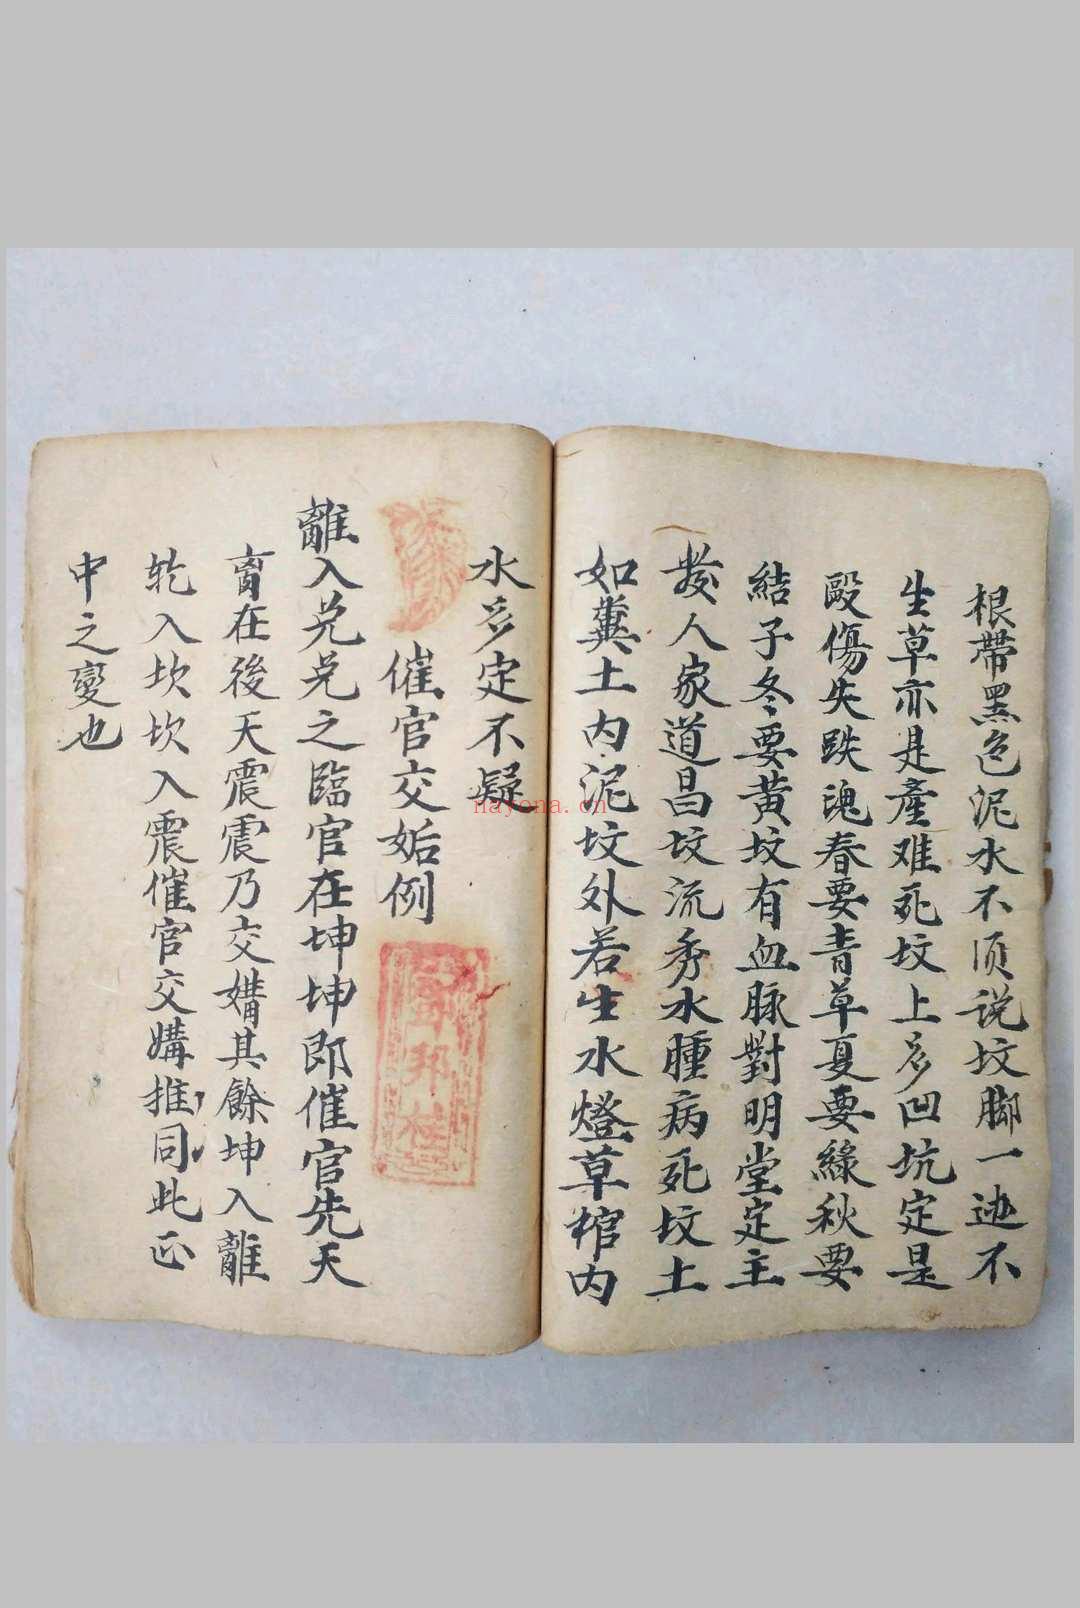 根帶黑色泥水不須说坟脚一边不
生草亦是產难死坟上多凹坑定是
毆傷失跌魂春要青草夏要綠秋要
結子冬要黄坟有血脉對明堂定主
發人家道昌坟流秀水腫病死坟土
如糞土内泥坟外若生水燈草棺内
水多定不疑
催官交姤例
離入兑兑之臨官在坤坤即催官先天
离在後天震震乃交媾其餘坤入離
乾入坎坎入震催官交媾推同此正
中之變也
邦
nayona.cn